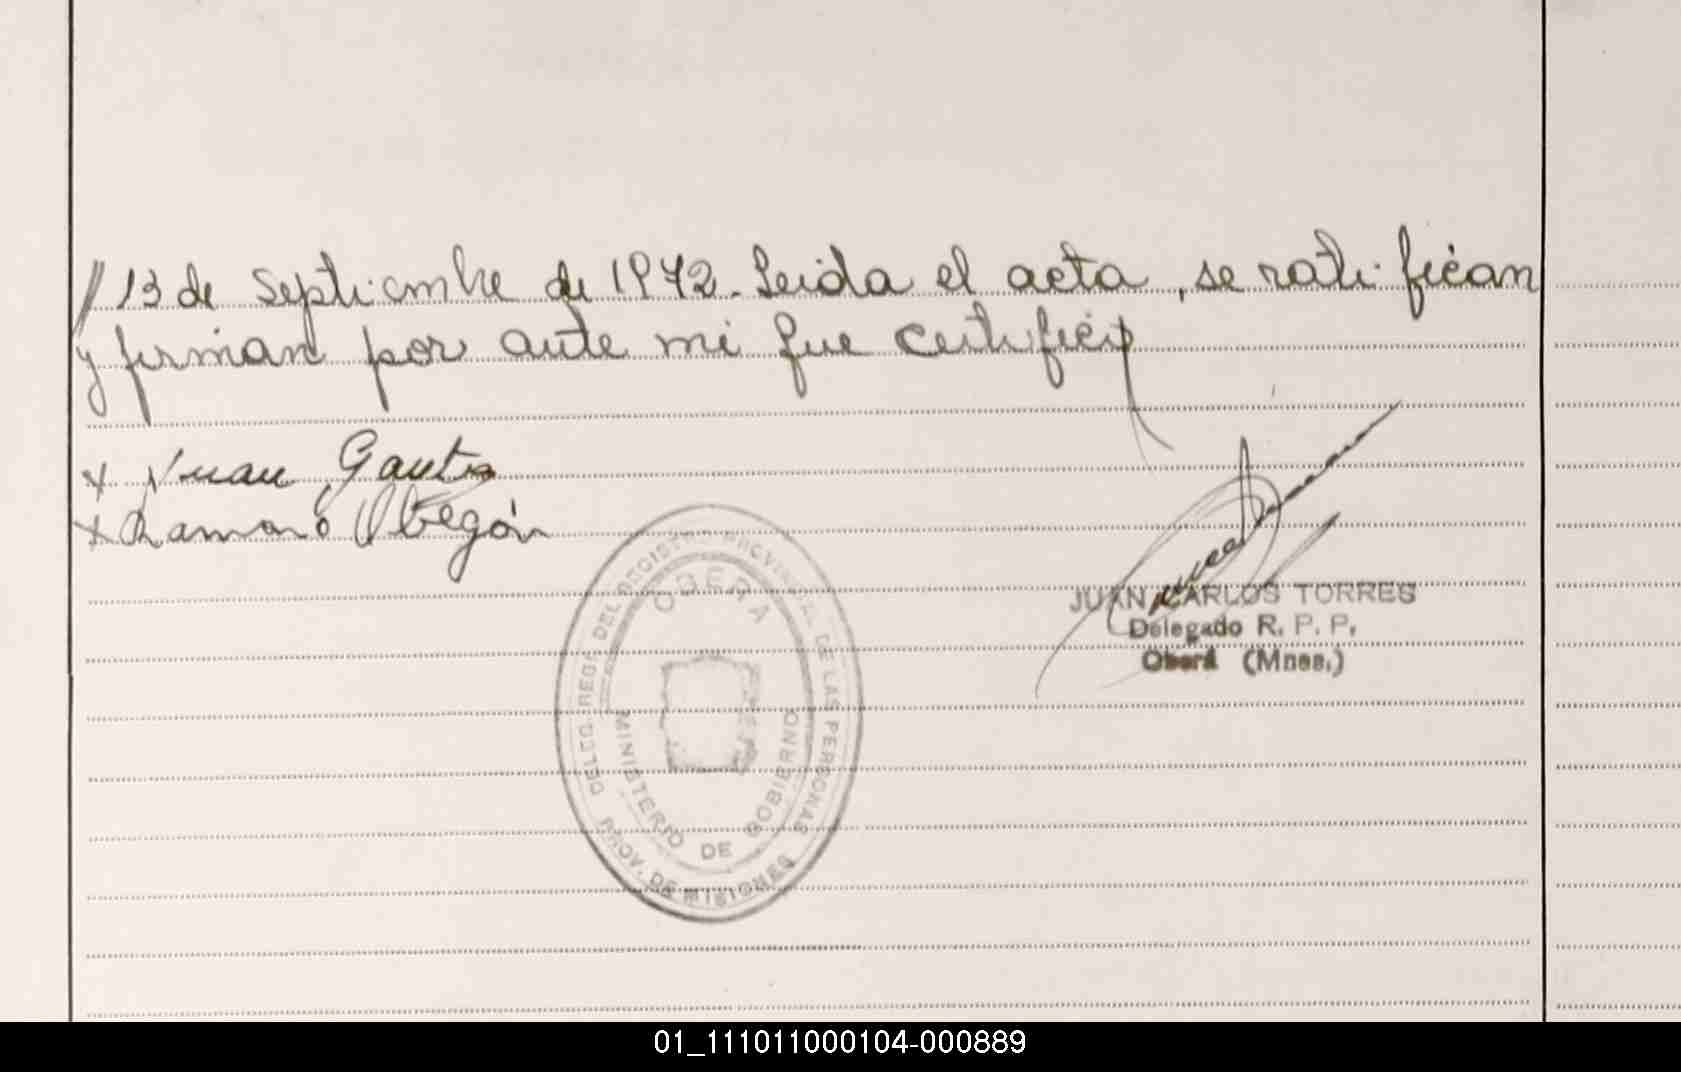 // 13 de Septiembre de 1972. Leida el acta, se ratifican
y firman por ante mi que certifico
x Juan Gauto
x Ramona Obregón
JUAN CARLOS TORRES
Delegado R. P. P.
Oberá (Mnes.)
DELEG. REG. DEL REGISTRO PROVINCIAL DE LAS PERSONAS
OBERA
MINISTERIO DE GOBIERNO
PROV. DE MISIONES
01_111011000104-000889